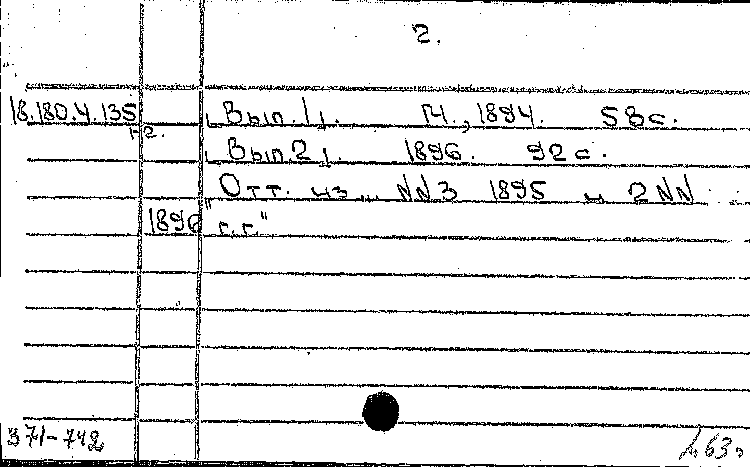 2.
18.180.4.135 [Вып. 1]. М., 1894. 58 с.
1-2.
[Вып. 2]. 1896. 92 с.
"Отт. из NN3 1895 и 2 NN
1896 г.г."
371-742